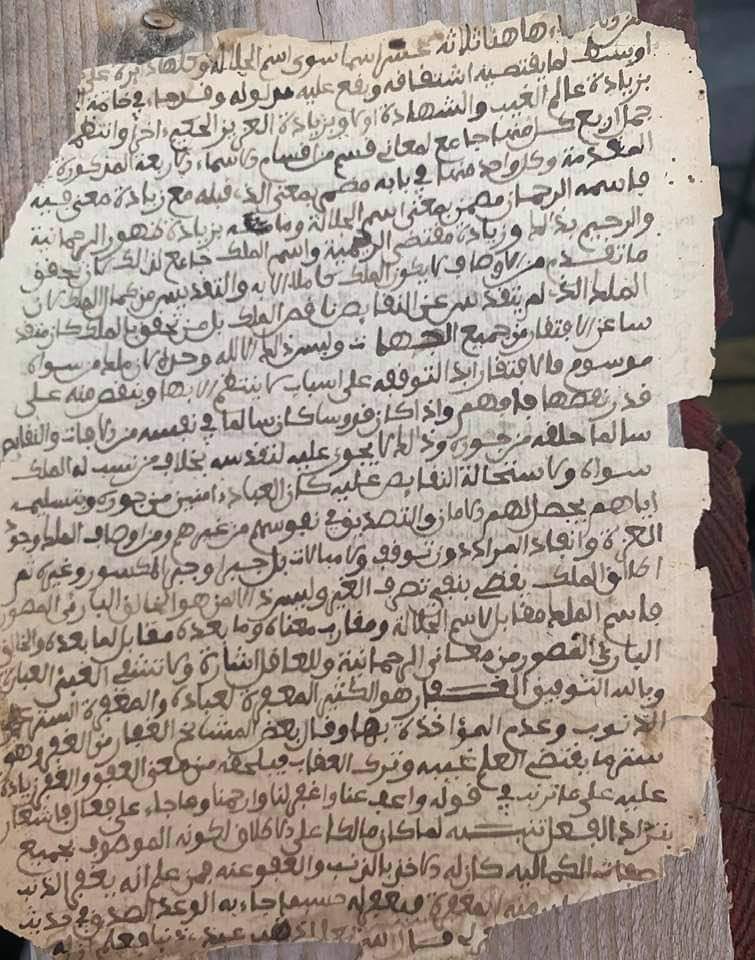 هاهنا ثلاثة عشر اسما سوى اسم الجلالة وكلها دايرة على
اوسط لما يقتضيه اشتقاقه ويقع عليه مدلوله وقد جاء في خاتمة
بزيادة عالم الغيب والشهادة اولا وبزيادة العزيز الحكيم اخرا وانتظم
جمل اربع كل منها جامع لمعاني قسم من اقسام الاسماء الاربعة المذكورة
المقدمة وكل واحد منها في بابه مضمن بمعنى الذي قبله مع زيادة معنى فيه
فاسمه الرحمان مضمن بمعنى اسم الجلالة وما بزيادة ظهور الرحمانية
والرحيم بذلك وزيادة مقتضى الرحمية واسم الملك جامع لذلك كان يحقق
ما تقدم من الاوصاف لا يكون الملك كاملا الا به والتقديس من كمال الملك لان
الملك الذي لم يتقدس عن النقايص ناقص الملك بل من يحقق بالملك كان منقد
سا عن الافتقار من جميع الجهات وليس ذلك الا لله وحده لان ملك من سواه
موسوم بالافتقار ابدا لتوقفه على اسباب لا ينتظم الا بها وينقص منه على
قدر نقصها فافهم واذا كان قدوسا كان سالما في نفسه من الافات والنقايص
سالما خلقه من جوره وذلك لا يجوز عليه لتقدسه بخلاف من نسب له الملك
سواه ولاستحالة النقايص عليه كان العباد امنين من جوره وبتسليمه
اياهم يحصل لهم الامان والتصديق في نفوسهم من غيرهم ومن اوصاف الملك وجود
العزة وانفاذ المراد دون توقف ولا مبالات بل جبرا وجبر المكسور وغيره ثم
اطلاق الملك يقضي بنفي تصرف الغير وليس ذلك الا لمن هو الخالق البارئ المصور
فاسم الملك مقابل لاسم الجلالة ومقارب معناه وما بعده مقابل لما بعده والخالق
البارئ المصور من معاني الرحمانية وللعاقل اشارة ولا تشفي الغبي العبارة
وبالله التوفيق الغفار هو الكثير المغفرة لعباده والمغفرة الستر على
الذنوب وعدم المؤاخذة بها وقال بعض المشائخ الغفار من الغفر وهو
ستر ما يقتضي العلم غيبه وترك العقاب فيلحقه من معنى العفو والغفر زيادة
عليه على ما ترتب في قوله واعف عنا واغفر لنا وارحمنا وما جاء على فعال فاشعار
بتزايد الفعل تنبيه لما كان مالكا على الاطلاق لكونه الموصوف بجميع
صفات الكمالية كان له الاخذ بالذنب والعفو عنه فمن علم انه يغفر الذنب
منه المغفرة فيغفر له حسبما جاء به الوعد الصدوق في حديث
قال الله تعالى اذنب عبدي ذنبا فعلم ان له